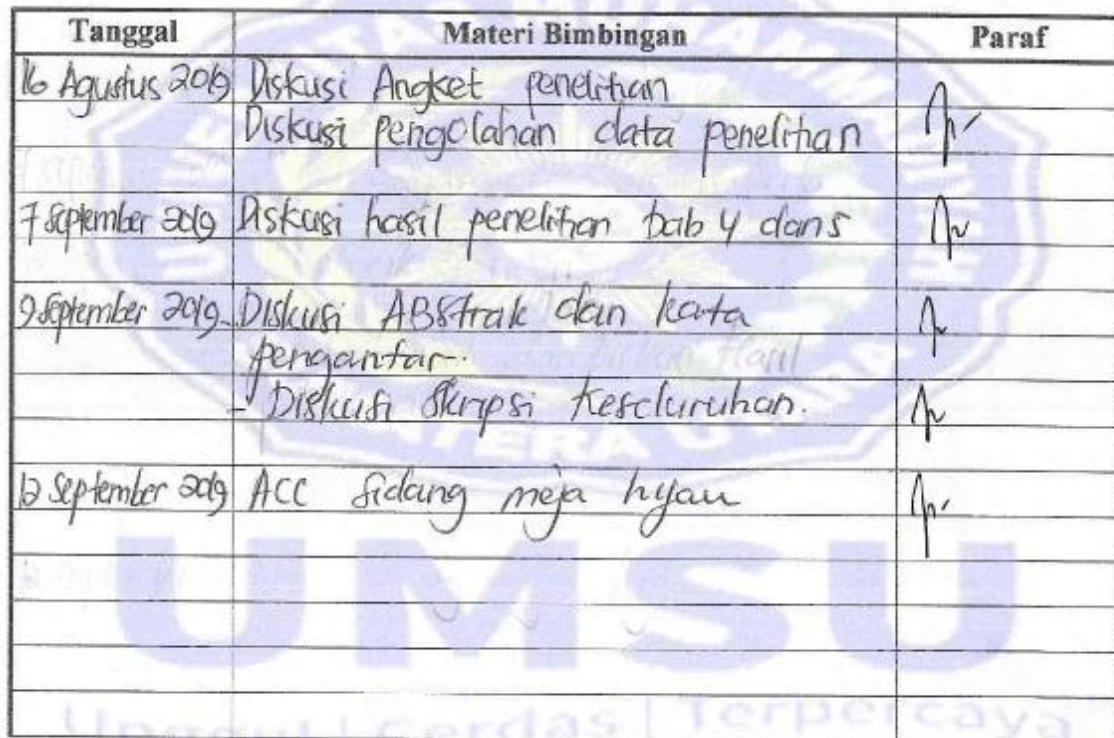 Tanggal Materi Bimbingan Paraf
16 Agustus 2019 Diskusi Angket penelitian
Diskusi pengolahan data penelitian
7 September 2019 Diskusi hasil penelitian bab 4 dan 5
9 September 2019 - Diskusi ABStrak dan kata
pengantar.
- Diskusi Skripsi Keseluruhan.
12 September 2019 ACC Sidang meja hijau
UMSU
Unggul | Cerdas | Terpercaya